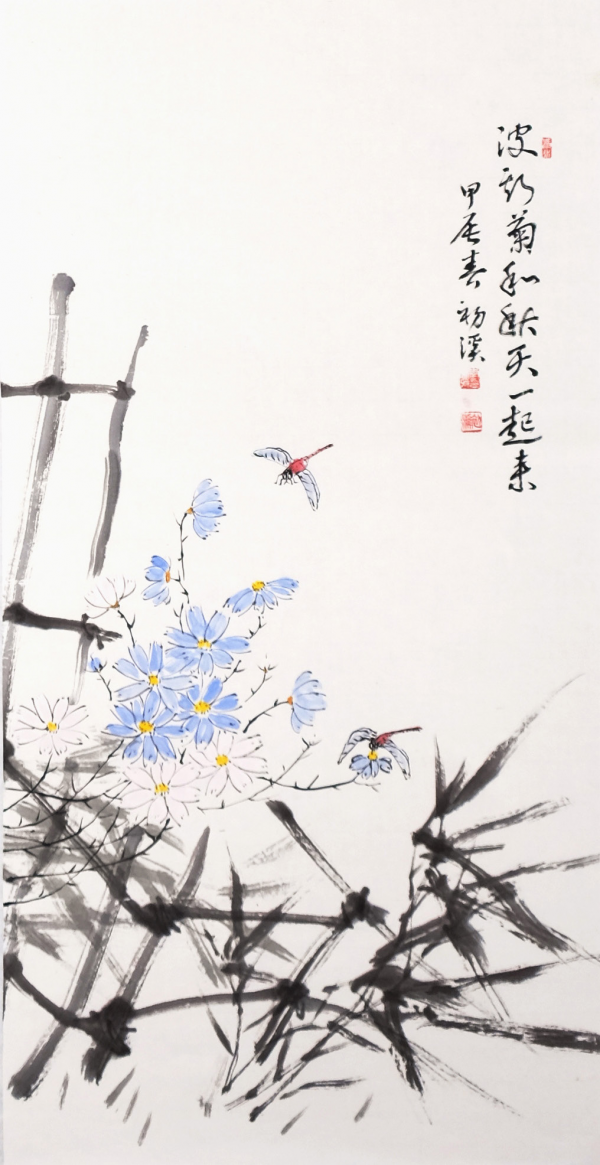 波斯菊和秋天一起来
甲辰春初溪